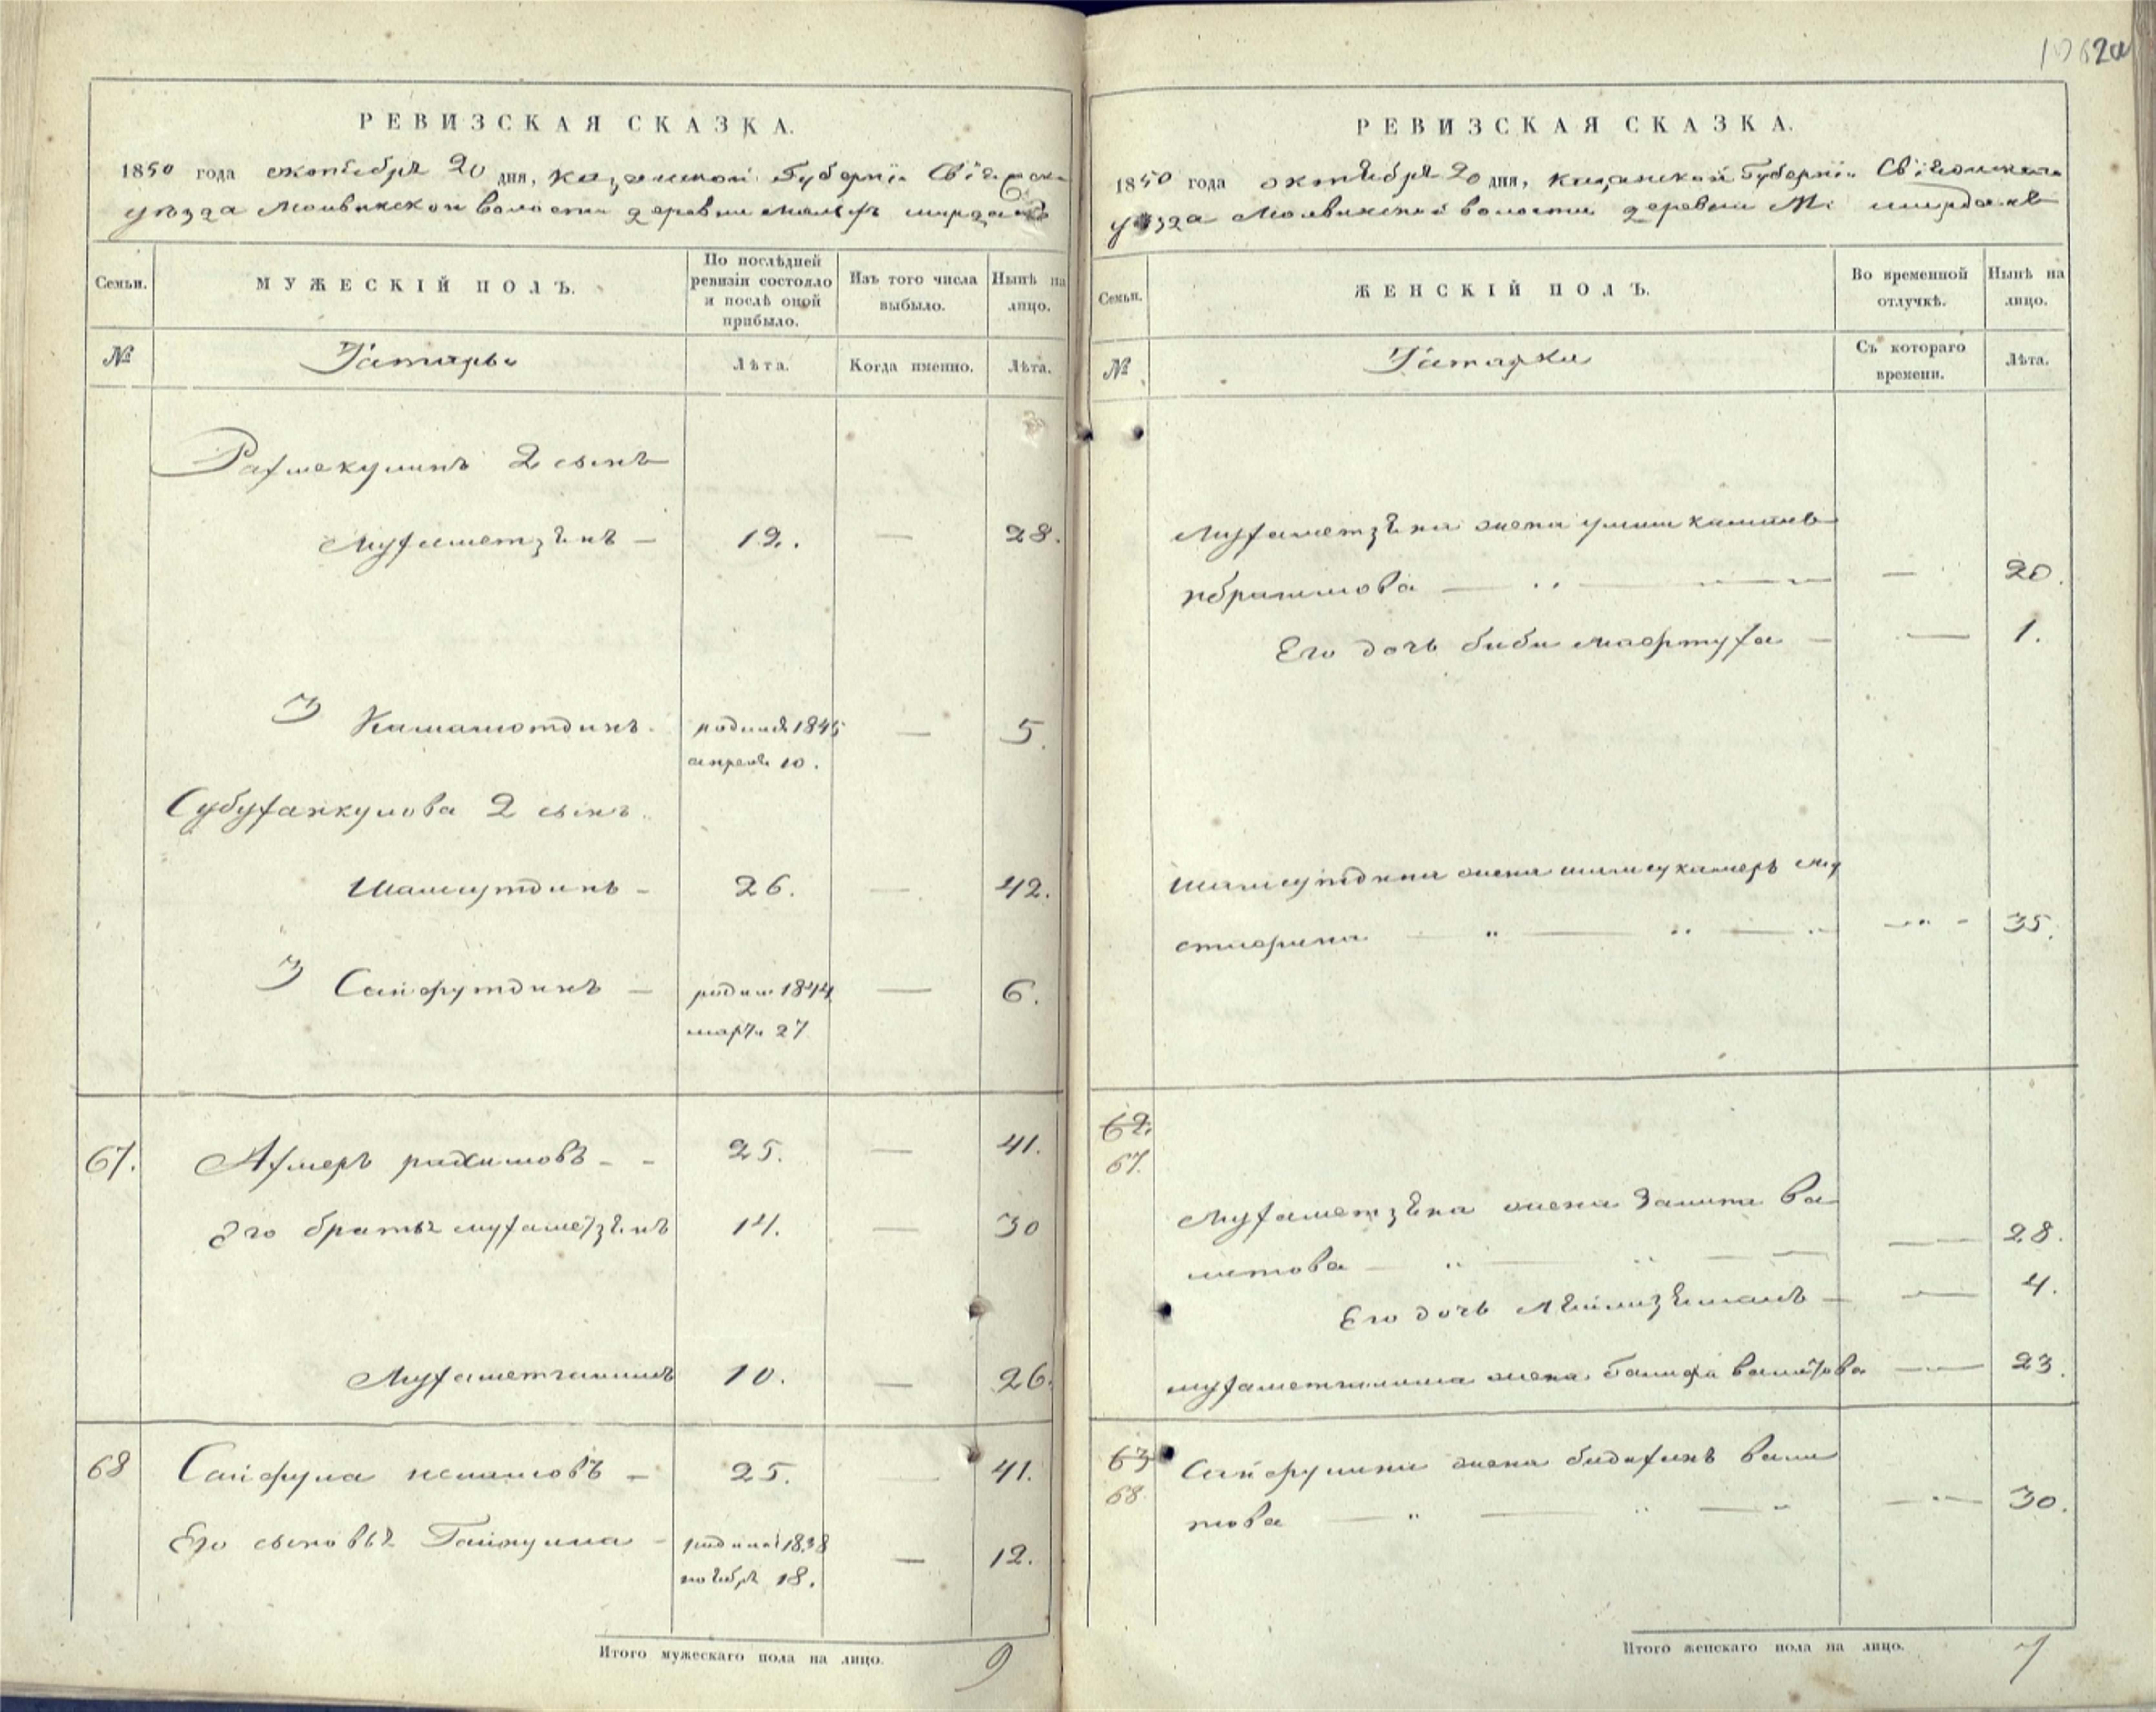 1062а
РЕВИЗСКАЯ СКАЗКА.
1850 года октября 20 дня, Казанской Губерніи Свіяжска
уѣзда Молвинской волости деревни Малыхъ ширданъ
Семьи.
МУЖЕСКІЙ ПОЛЪ.
По послѣдней ревизіи состояло и послѣ оной прибыло.
Изъ того числа выбыло.
Нынѣ на лицо.
№
Татары
Лѣта.
Когда именно.
Лѣта.
Рахмекулинъ 2 сынъ
Мухаметзянъ — 12. — 28.
3 Камалютдинъ. родился 1845 — 5.
апреля 10.
Субуханкулова 2 сынъ
Шамсутдинъ — 26. — 42.
3 Сайфутдинъ — родил 1844 — 6.
марта 27
67. Ахмеръ рахимовъ — 25. — 41.
Его братья мухаметзянъ 14. — 30
Мухаметгалимъ 10. — 26.
68 Сайфула исламовъ — 25. 41.
Его сыновья Гайнулла — родился 1838 — 12.
ноября 18.
Итого мужескаго пола на лицо. 9
РЕВИЗСКАЯ СКАЗКА.
1850 года октября 20 дня, Казанской Губерніи Свіяжскаго
уѣзда Молвинской волости деревни М: ширданъ
Семьи.
ЖЕНСКІЙ ПОЛЪ.
Во временной отлучкѣ.
Нынѣ на лицо.
№
Татарки
Съ котораго времени.
Лѣта.
Мухаметзяна жена
ибрагимова — — 20.
Его дочь биби махртуха — — 1.
Шамсутдина жена шамсукамеръ му
стафина — — 35.
62.
67.
Мухаметзяна жена Залита ва
литова — — 28.
Его дочь — 4.
мухаметгалима жена Галифа валитова — 23.
63
68.
Сайфулина жена вали
това — — 30.
Итого женскаго пола на лицо. 7